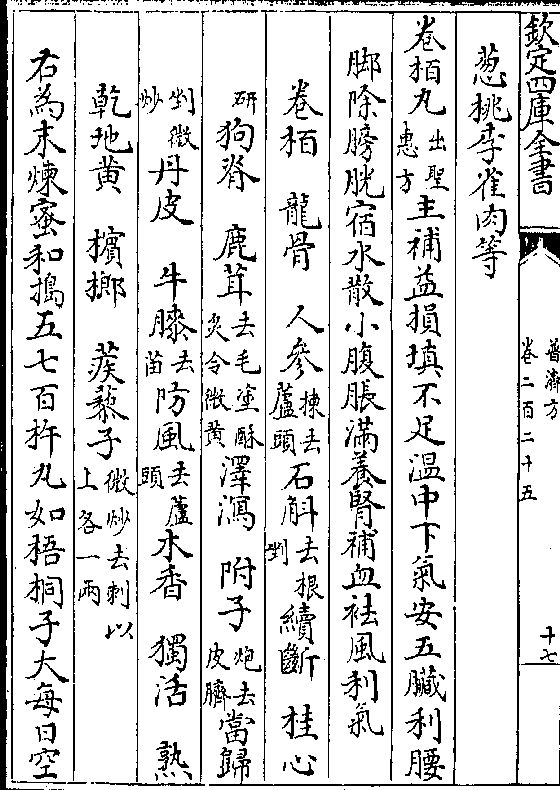 欽定四庫全書
普濟方
卷二百二十五
十七
葱桃李雀肉等
卷栢丸出聖惠方主補益損填不足溫中下氣安五臟利腰
脚除膀胱宿水散小腹脹滿養腎補血袪風利氣
卷栢 龍骨 人參揀去蘆頭石斛去根剉續斷 桂心
研狗脊 鹿茸去毛塗酥炙令微黃澤瀉 附子炮去皮臍當歸
剉微炒丹皮 牛膝去苗防風去蘆頭木香 獨活 熟
乾地黃 檳榔 蒺藜子微炒去刺以上各一兩
右為末煉蜜和搗五七百杵丸如梧桐子大每日空